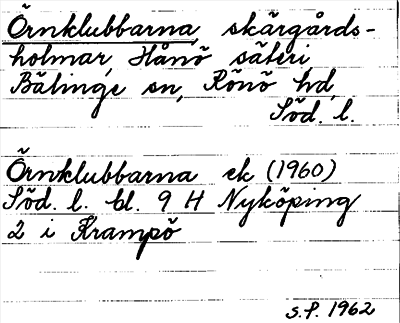 Örnklubbarna, skärgårds-
holmar, Hånö säteri
Bälinge sn, Rönö hd,
Söd. l.
Örnklubbarna ek (1960)
Söd. l. bl. 9 H Nyköping
2 i Krampö
S.P. 1962